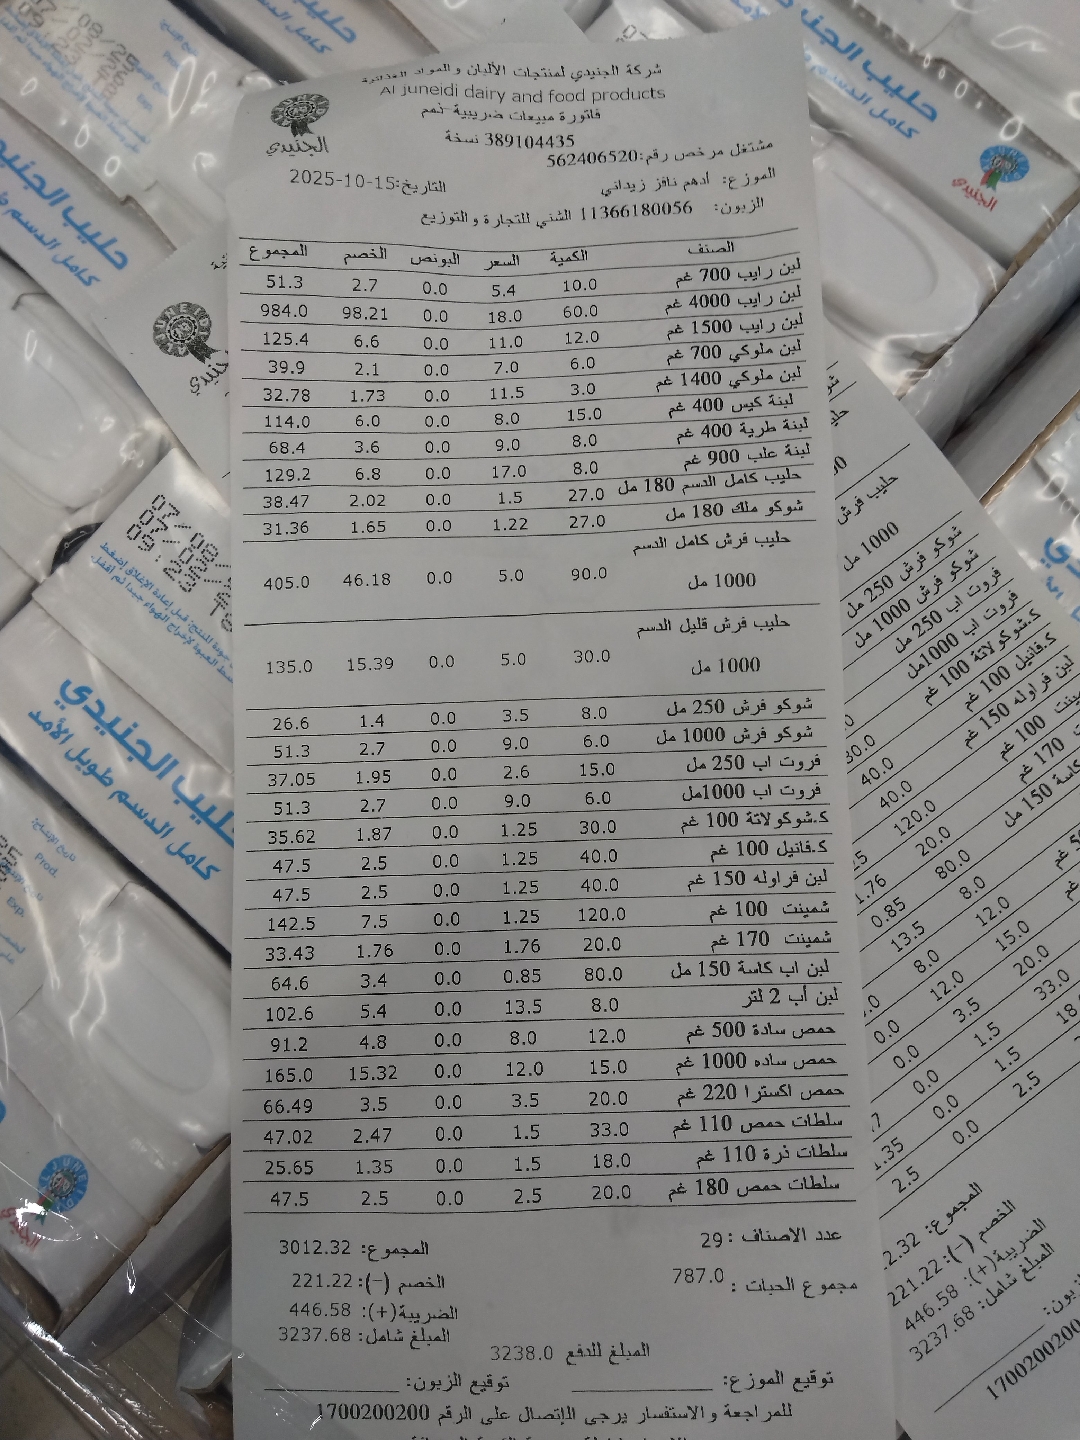 شركة الجنيدي لمنتجات الألبان والمواد الغذائية
Al juneidi dairy and food products
فاتورة مبيعات ضريبية ذمم
389104435 نسخة
مشتغل مرخص رقم:562406520
الجنيدي
الموزع: أدهم نافز زيداني
التاريخ:2025-10-15
الزبون: 11366180056 الشني للتجارة والتوزيع
الصنف الكمية السعر البونص الخصم المجموع
لبن رايب 700 غم 10.0 5.4 0.0 2.7 51.3
لبن رايب 4000 غم 60.0 18.0 0.0 98.21 984.0
لبن رايب 1500 غم 12.0 11.0 0.0 6.6 125.4
لبن ملوكي 700 غم 6.0 7.0 0.0 2.1 39.9
لبن ملوكي 1400 غم 3.0 11.5 0.0 1.73 32.78
لبنة كيس 400 غم 15.0 8.0 0.0 6.0 114.0
لبنة طرية 400 غم 8.0 9.0 0.0 3.6 68.4
لبنة علب 900 غم 8.0 17.0 0.0 6.8 129.2
حليب كامل الدسم 180 مل 27.0 1.5 0.0 2.02 38.47
شوكو ملك 180 مل 27.0 1.22 0.0 1.65 31.36
حليب فرش كامل الدسم
1000 مل 90.0 5.0 0.0 46.18 405.0
حليب فرش قليل الدسم
1000 مل 30.0 5.0 0.0 15.39 135.0
شوكو فرش 250 مل 8.0 3.5 0.0 1.4 26.6
شوكو فرش 1000 مل 6.0 9.0 0.0 2.7 51.3
فروت اب 250 مل 15.0 2.6 0.0 1.95 37.05
فروت اب 1000مل 6.0 9.0 0.0 2.7 51.3
ك.شوكولاتة 100 غم 30.0 1.25 0.0 1.87 35.62
ك.فانيل 100 غم 40.0 1.25 0.0 2.5 47.5
لبن فراوله 150 غم 40.0 1.25 0.0 2.5 47.5
شمينت 100 غم 120.0 1.25 0.0 7.5 142.5
شمينت 170 غم 20.0 1.76 0.0 1.76 33.43
لبن اب كاسة 150 مل 80.0 0.85 0.0 3.4 64.6
لبن أب 2 لتر 8.0 13.5 0.0 5.4 102.6
حمص سادة 500 غم 12.0 8.0 0.0 4.8 91.2
حمص ساده 1000 غم 15.0 12.0 0.0 15.32 165.0
حمص اكسترا 220 غم 20.0 3.5 0.0 3.5 66.49
سلطات حمص 110 غم 33.0 1.5 0.0 2.47 47.02
سلطات ذرة 110 غم 18.0 1.5 0.0 1.35 25.65
سلطات حمص 180 غم 20.0 2.5 0.0 2.5 47.5
عدد الاصناف : 29
المجموع: 3012.32
مجموع الحبات : 787.0
الخصم (-): 221.22
الضريبة(+): 446.58
المبلغ شامل: 3237.68
المبلغ للدفع 3238.0
توقيع الموزع: ____________ توقيع الزبون: ____________
للمراجعة والاستفسار يرجى الإتصال على الرقم 1700200200
حليب الجنيدي
كامل الدسم
حليب الجنيدي
كامل الدسم طويل الأمد
الجنيدي
حليب فرش
1000 مل
شوكو فرش 250 مل
شوكو فرش 1000 مل
فروت اب 250 مل
فروت اب 1000مل
ك.شوكولاتة 100 غم
ك.فانيل 100 غم
لبن فراوله 150 غم
المجموع:
الخصم (-): 221.22
الضريبة(+): 446.58
المبلغ شامل: 3237.68